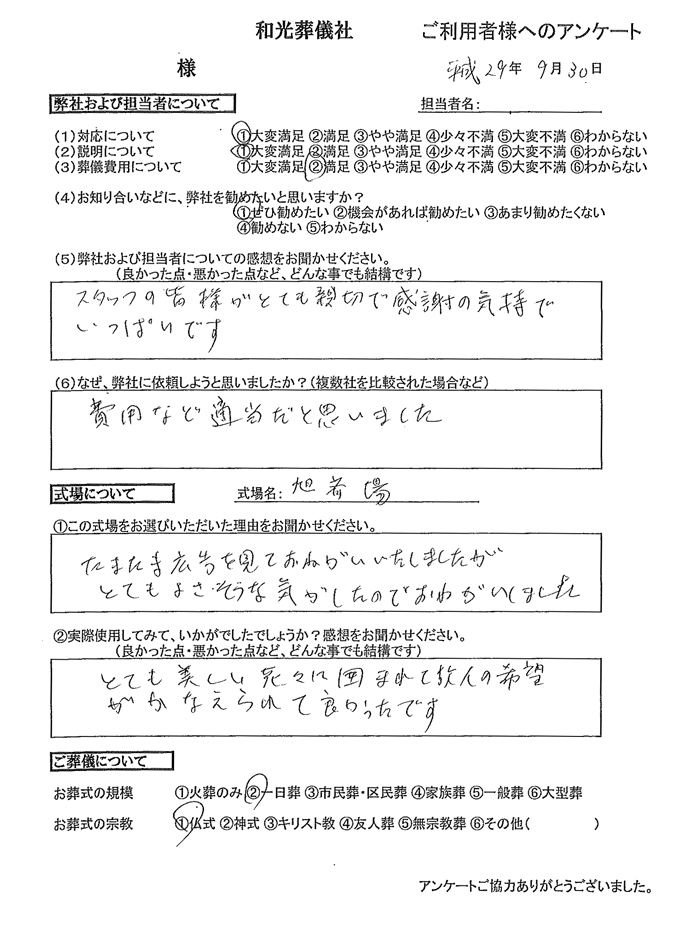 和光葬儀社 ご利用者様へのアンケート
様 平成29年 9月30日
弊社および担当者について 担当者名:
(1)対応について ①大変満足 ②満足 ③やや満足 ④少々不満 ⑤大変不満 ⑥わからない
(2)説明について ①大変満足 ②満足 ③やや満足 ④少々不満 ⑤大変不満 ⑥わからない
(3)葬儀費用について ①大変満足 ②満足 ③やや満足 ④少々不満 ⑤大変不満 ⑥わからない
(4)お知り合いなどに、弊社を勧めたいと思いますか?
①ぜひ勧めたい ②機会があれば勧めたい ③あまり勧めたくない
④勧めない ⑤わからない
(5)弊社および担当者についての感想をお聞かせください。
(良かった点・悪かった点など、どんな事でも結構です)
スタッフの皆様がとても親切で感謝の気持で
いっぱいです
(6)なぜ、弊社に依頼しようと思いましたか?(複数社を比較された場合など)
費用など適当だと思いました
式場について 式場名: 旭斎場
①この式場をお選びいただいた理由をお聞かせください。
たまたま広告を見ておねがいいたしましたが
とてもよさそうな気がしたのでおねがいしました
②実際使用してみて、いかがでしたでしょうか?感想をお聞かせください。
(良かった点・悪かった点など、どんな事でも結構です)
とても美しい花々に囲まれて故人の希望
がかなえられて良かったです
ご葬儀について
お葬式の規模 ①火葬のみ ②一日葬 ③市民葬・区民葬 ④家族葬 ⑤一般葬 ⑥大型葬
お葬式の宗教 ①仏式 ②神式 ③キリスト教 ④友人葬 ⑤無宗教葬 ⑥その他( )
アンケートご協力ありがとうございました。